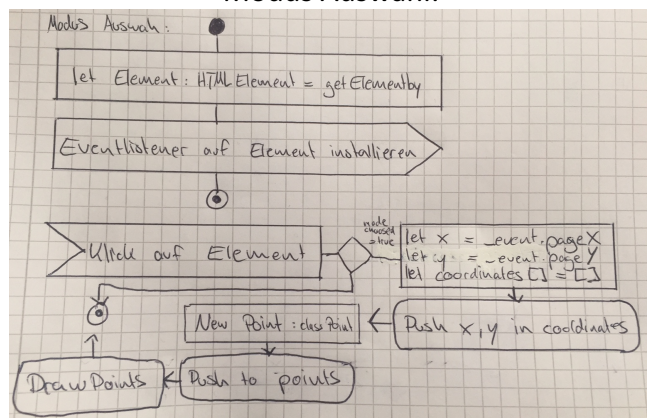 Modus Auswah:
let Element: HTMLElement = getElementby
Eventlistener auf Element installieren
Klick auf Element
mode
choosed
=true
let x = _event.pageX
let y = _event.pageY
let coordinates[] = []
Push x, y in cooldinates
New Point: class Point
Push to points
Draw Points